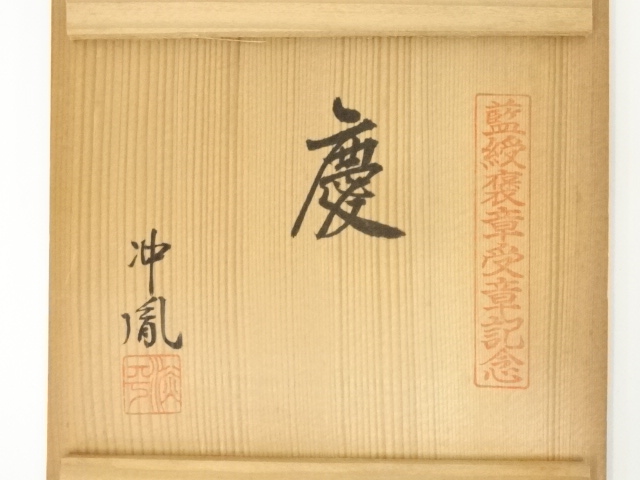 藍綬褒章受章記念
慶
冲胤